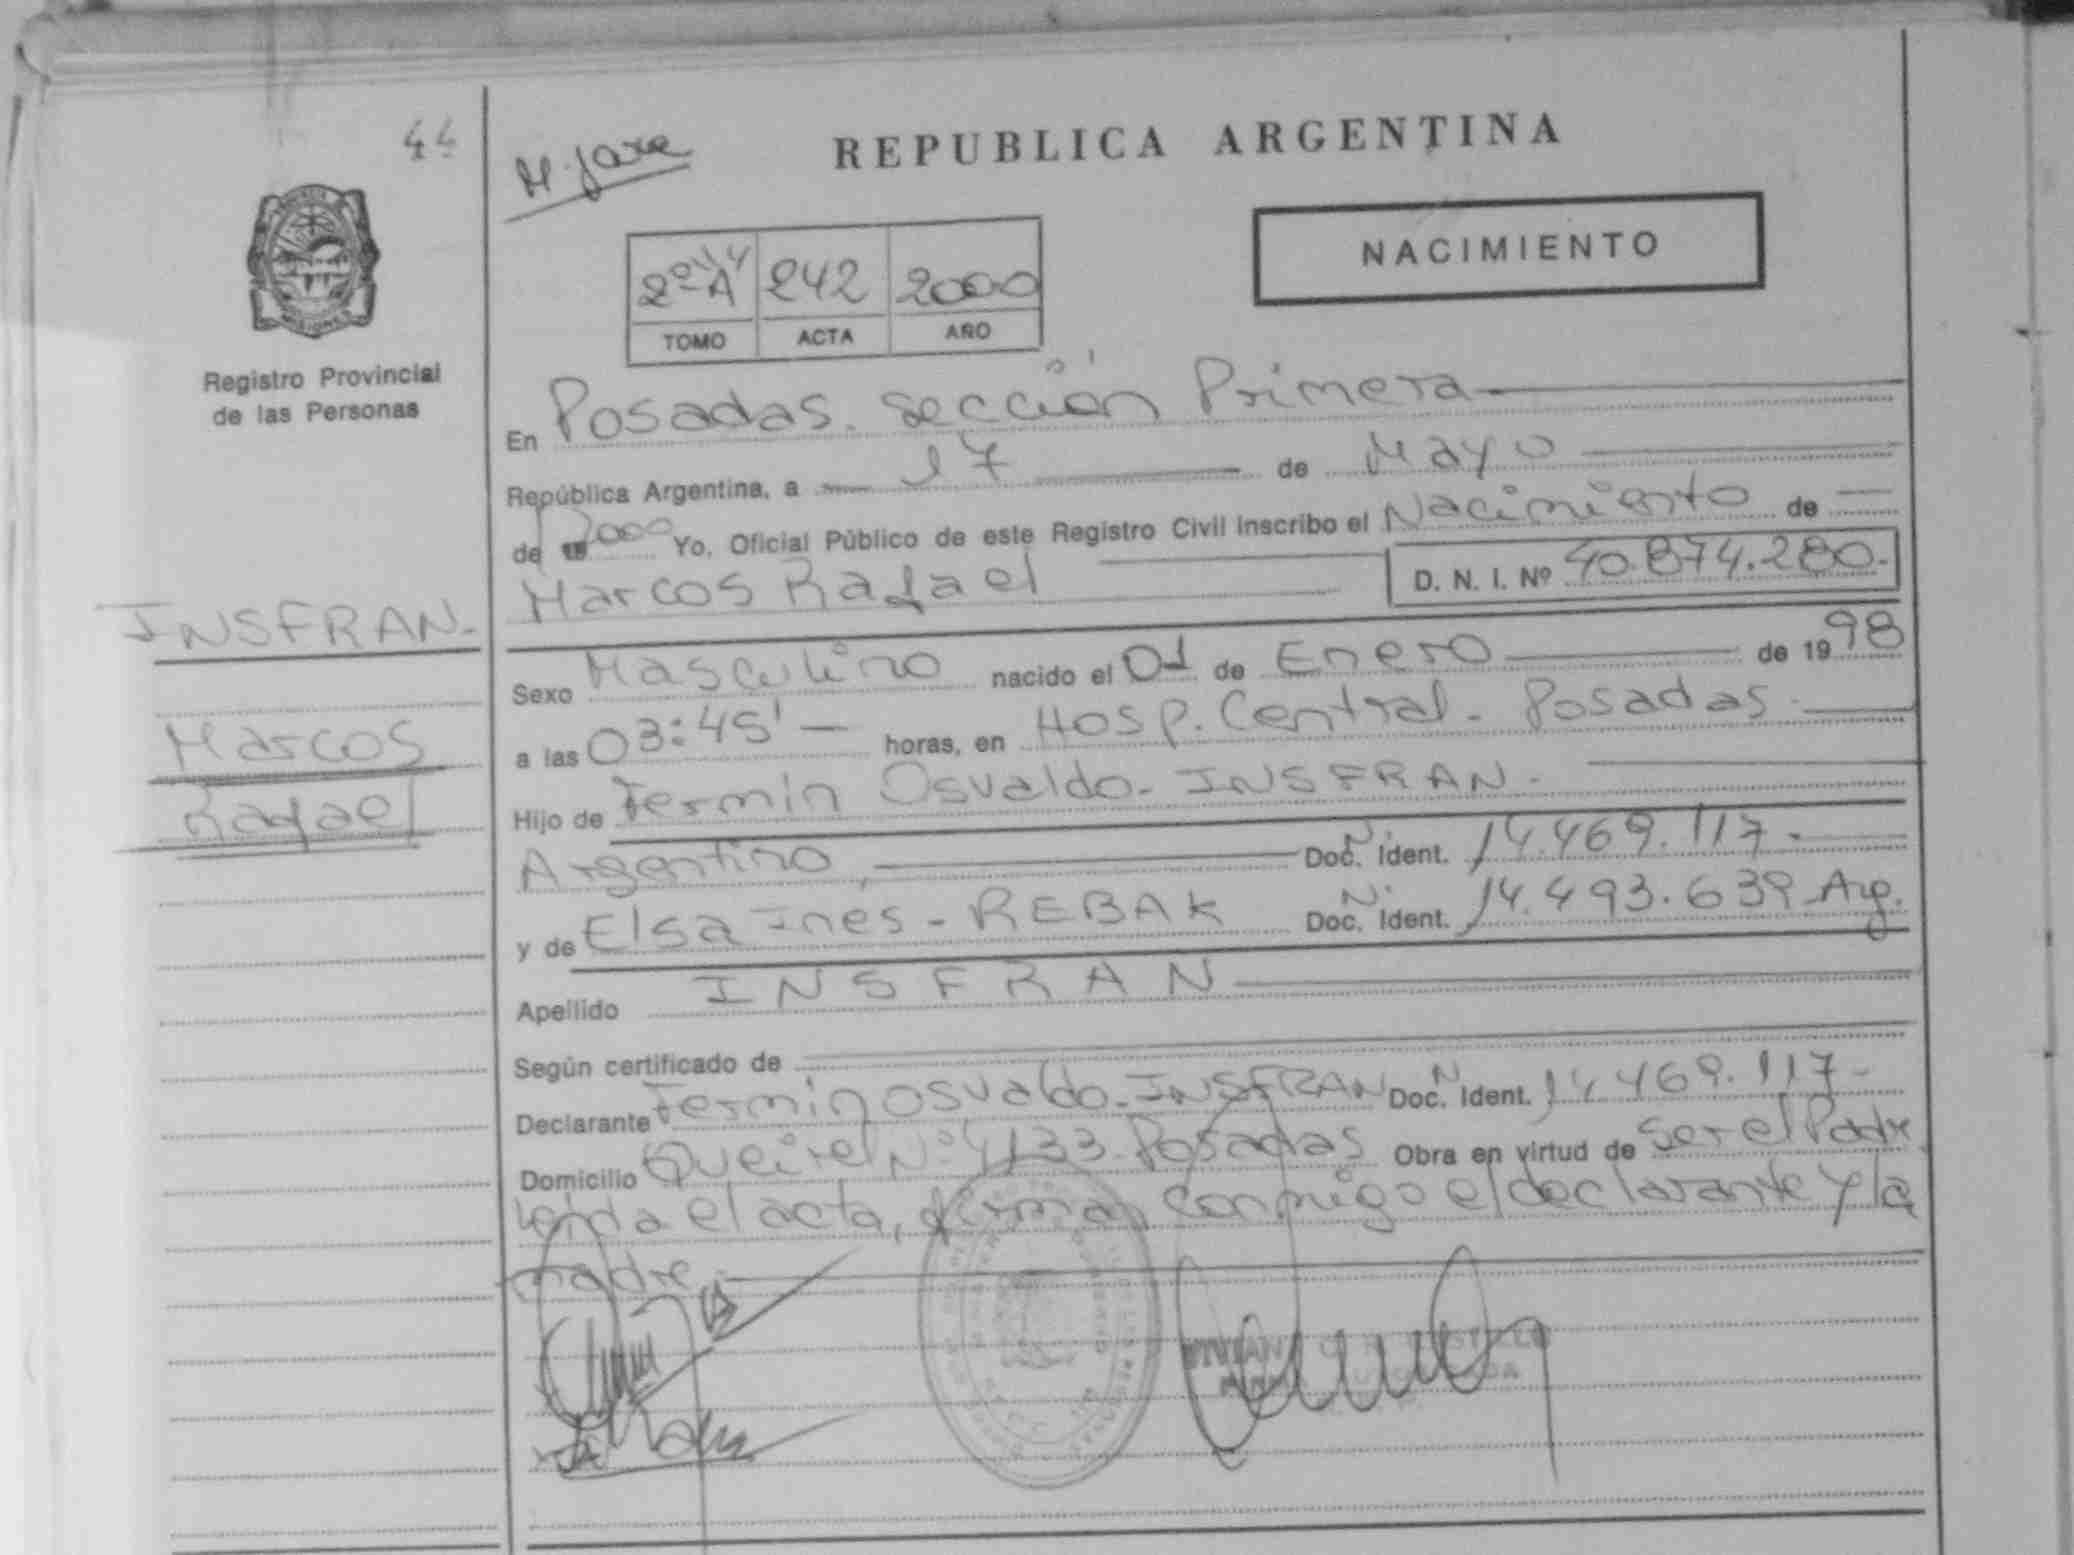 44
REPUBLICA ARGENTINA
NACIMIENTO
2º "A" 242 2000
TOMO ACTA AÑO
MISIONES
Registro Provincial
de las Personas
En Posadas. sección Primera
República Argentina, a 17 de Mayo
de 2000 Yo, Oficial Público de este Registro Civil inscribo el Nacimiento de
Marcos Rafael D. N. I. Nº 40.874.280.
INSFRAN.
Marcos
Rafael
Sexo Masculino nacido el 01 de Enero de 1998
a las 03:45' horas, en Hosp. Central. Posadas
Hijo de Fermin Osvaldo. INSFRAN.
Argentino, Doc. N. Ident. 14.469.117.
y de Elsa Ines - REBAK Doc. N. Ident. 14.493.639 Arg.
Apellido INSFRAN
Según certificado de
Declarante Fermin Osvaldo. INSFRAN Doc. N Ident. 14.469.117-
Domicilio Queirel Nº 4133. Posadas Obra en virtud de Ser el Padre
Leida el acta, firman conmigo el declarante y la
madre.